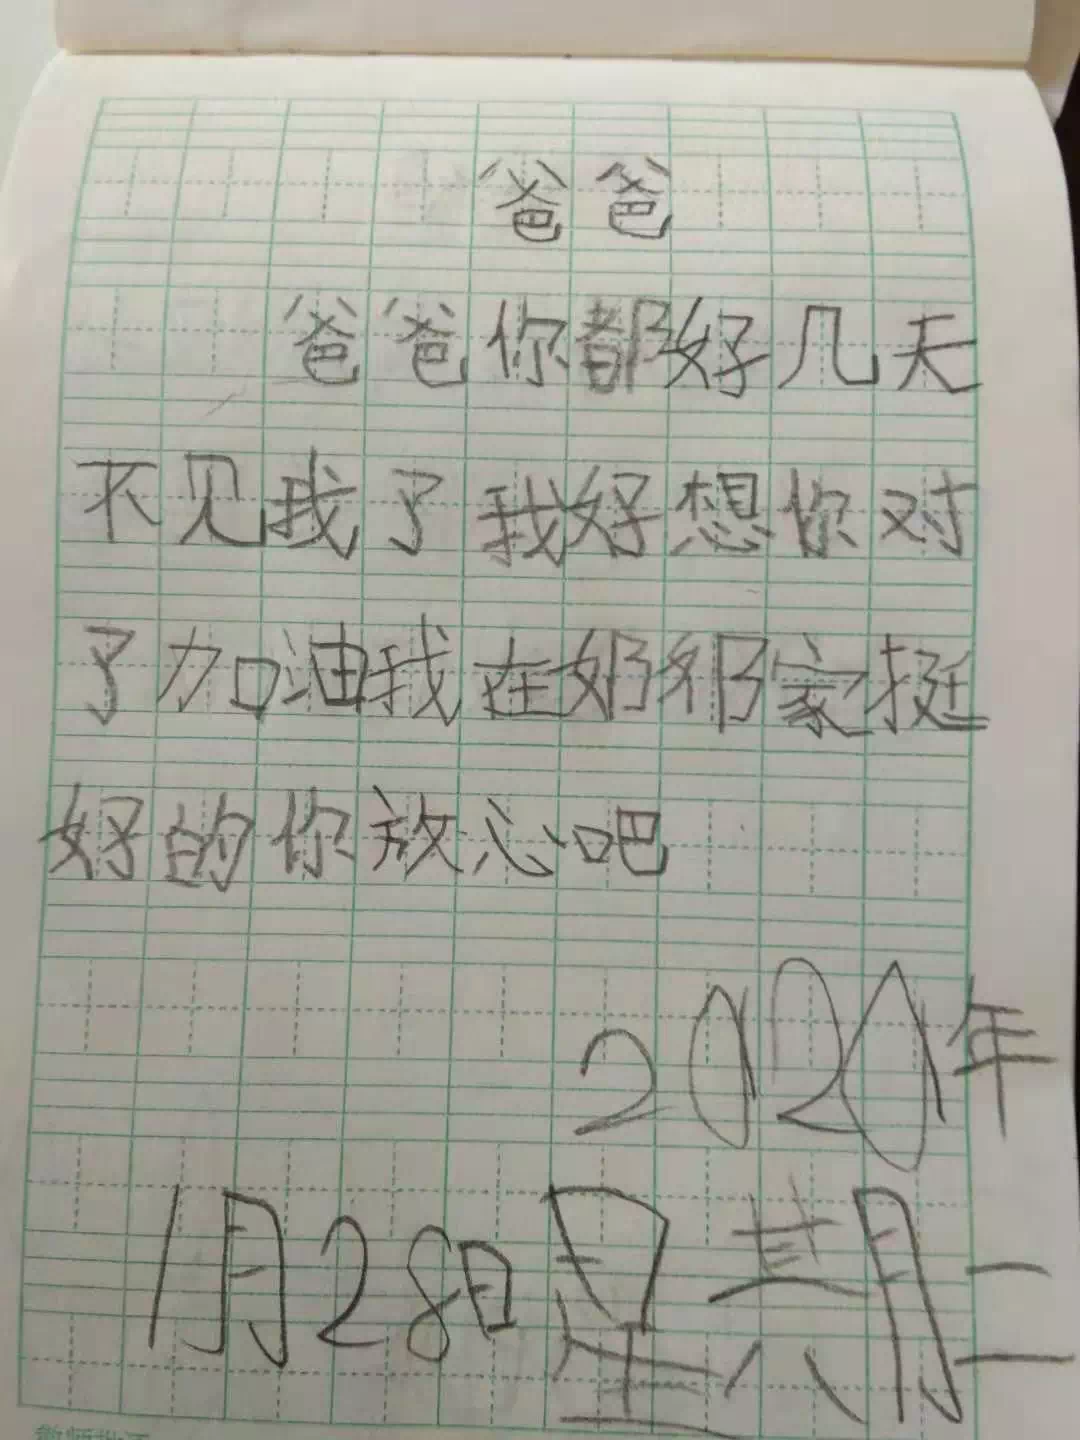 爸爸
爸爸你都好几天
不见我了我好想你对
了加油我在奶奶家挺
好的你放心吧
2020年
1月28日星期二